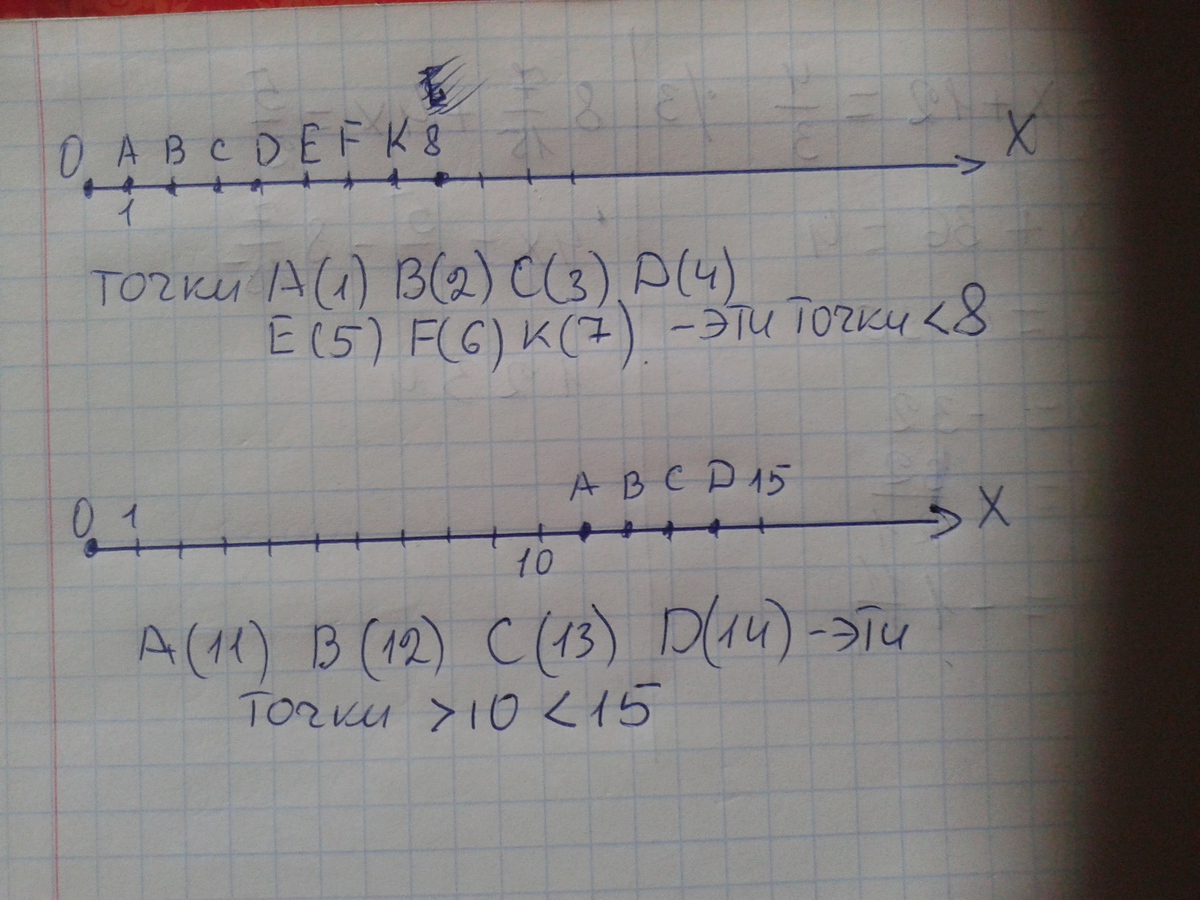 O A B C D E F K 8 X
1
точки A(1) B(2) C(3) D(4)
E(5) F(6) K(7) - эти точки < 8
A B C D 15
0 1 X
10
A(11) B(12) C(13) D(14) - эти
точки >10 <15